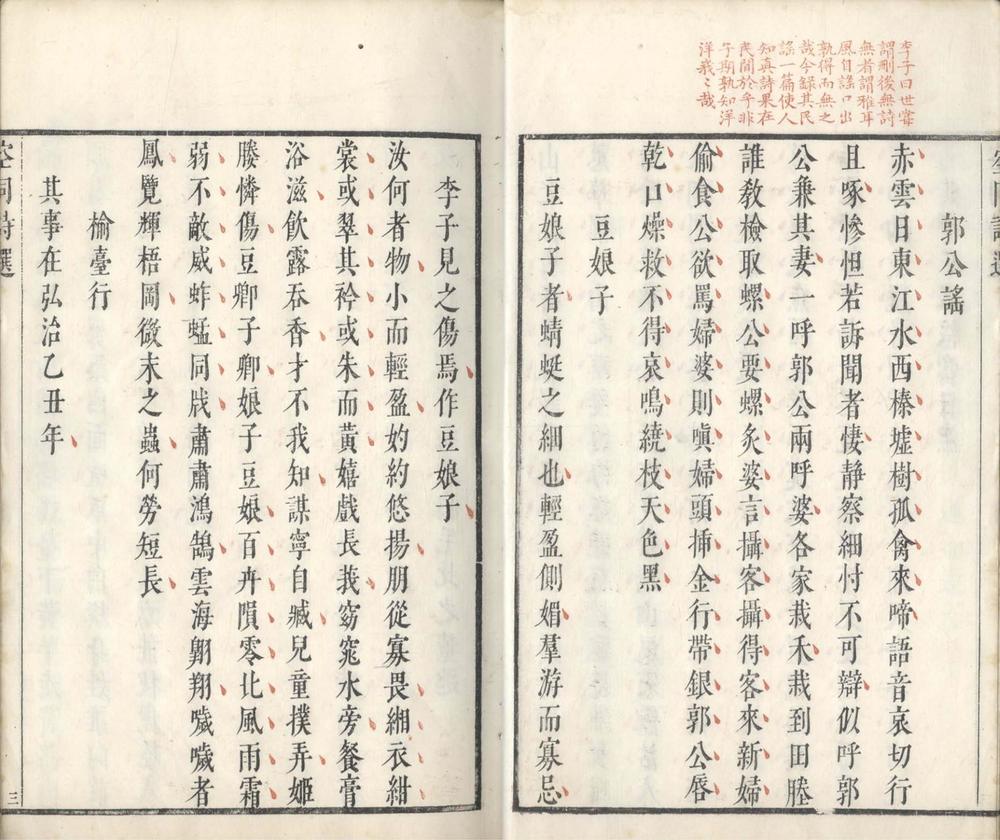 李子曰世嘗
謂刪後無詩
無者謂雅耳
風自謠口出
孰得而無之
哉今錄其民
謠一篇使人
知真詩果在
民間於乎非
子期孰知洋
洋峩〻哉
郭公謠
赤雲日東江水西榛墟樹孤禽來啼語音哀切行
且啄慘怛若訴聞者悽靜察細忖不可辯似呼郭
公兼其妻一呼郭公兩呼婆各家栽禾栽到田塍
誰教檢取螺公要螺炙婆言攝客攝得客來新婦
偷食公欲罵婦婆則嗔婦頭插金行帶銀郭公唇
乾口燥救不得哀鳴繞枝天色黑
豆娘子
豆娘子者蜻蜓之細也輕盈側媚羣游而寡忌
李子見之傷焉作豆娘子
汝何者物小而輕盈妁約悠揚朋從寡畏緗衣紺
裳或翠其衿或朱而黃嬉戲長莪窈窕水旁餐膏
浴滋飲露吞香才不我知謀寧自臧兒童撲弄姬
媵憐傷豆卿子卿娘子豆娘百卉隕零北風雨霜
弱不敵威蚱蜢同戕肅肅鴻鵠雲海翺翔噦噦者
鳳覽輝梧岡微末之蟲何勞短長
榆臺行
其事在弘治乙丑年
空同詩選
三